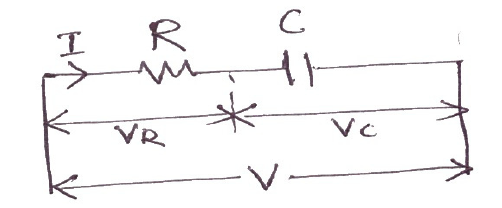 I R C
VR VC
V